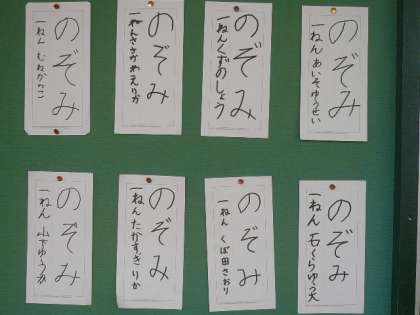 のぞみ
一ねん あいそゆうせい
のぞみ
一ねんくずのしょう
のぞみ
一ねんささがわえりか
のぞみ
一ねん
のぞみ
一ねん 石くらゆう大
のぞみ
一ねん くぼ田さおり
のぞみ
一ねん たかすぎりか
のぞみ
一ねん 山下ゆうが